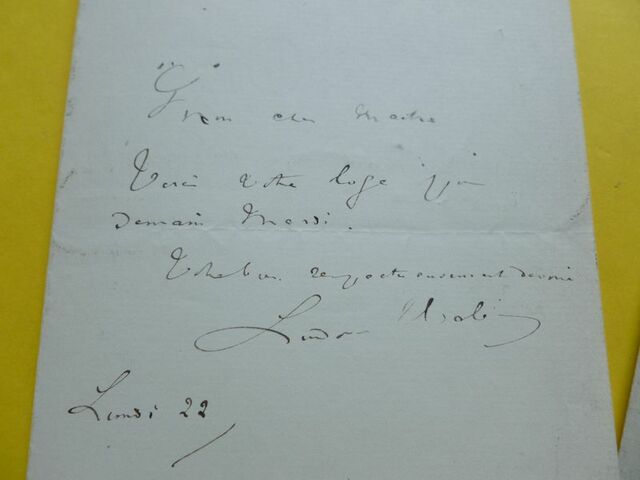 Mon cher Maître
Voici votre loge pour
demain Mardi.
Votre bien respectueusement dévoué
Ludovic Halévy
Lundi 22